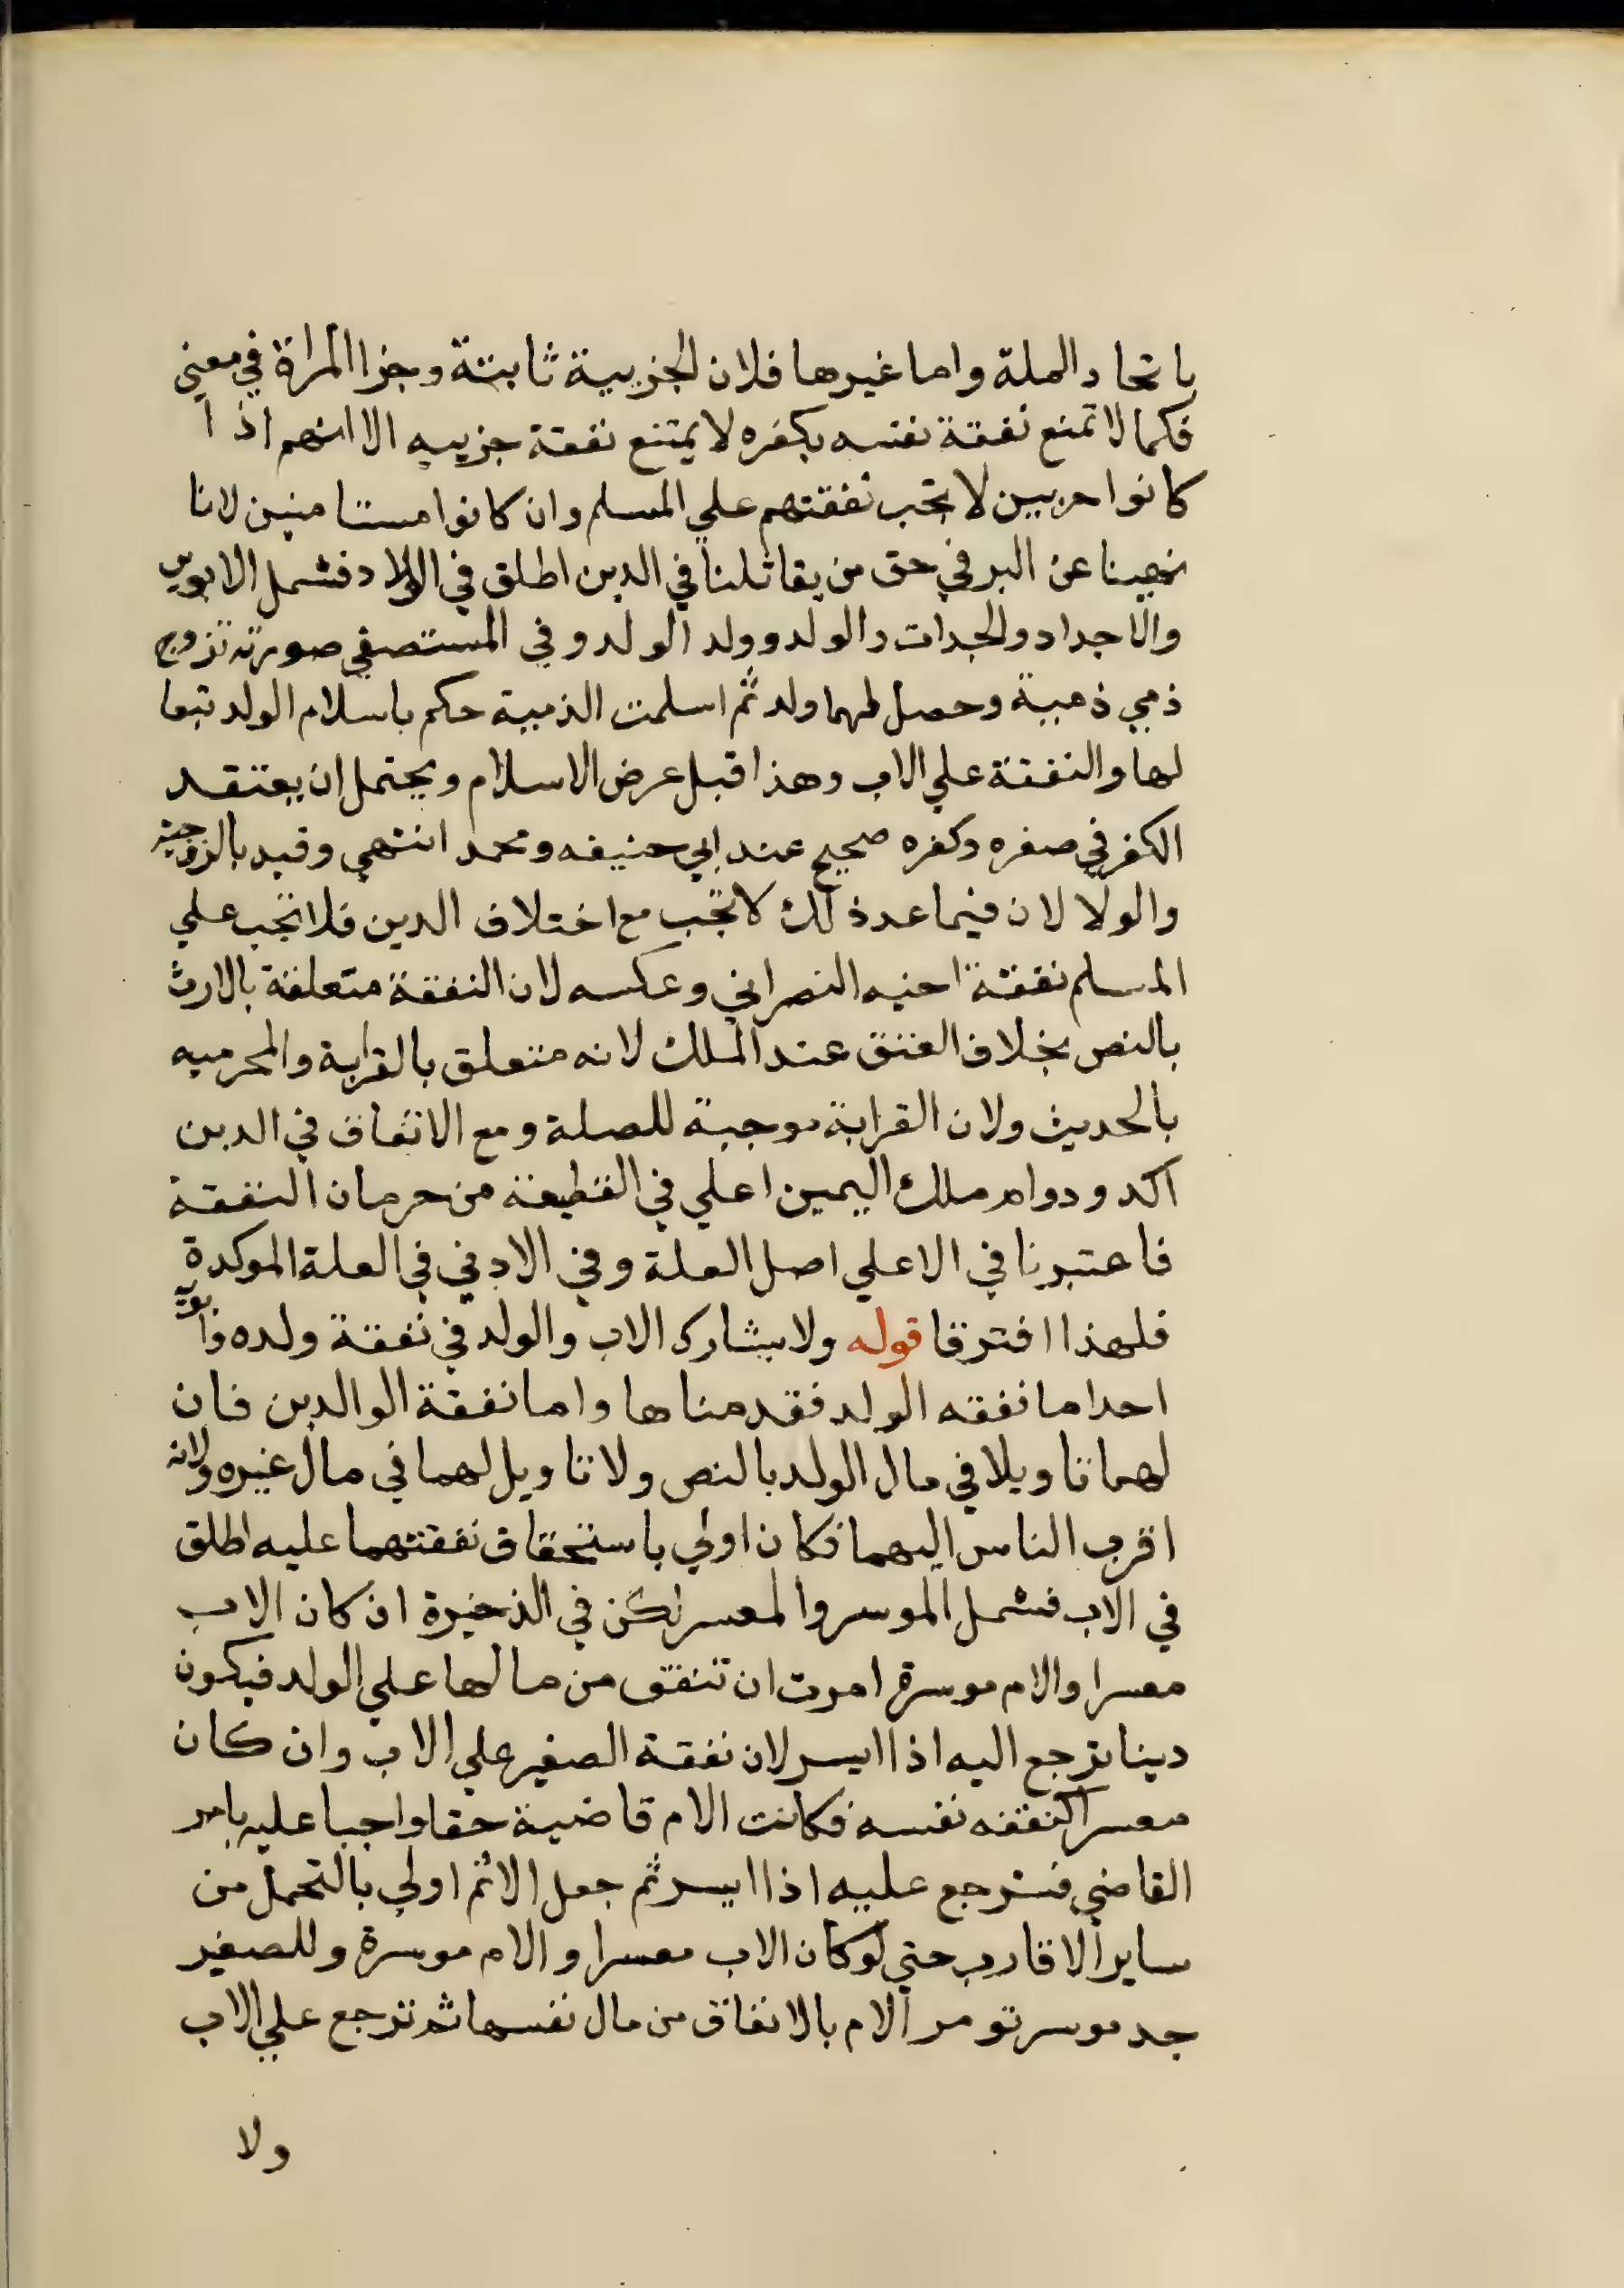 باتحاد الملة واما غيرها فلان الجزيية ثابتة وجزا المراة في معني
فكما لا تمنع نفقة نفسه بكفره لا يمتنع نفقة جزييه الا انهم اذا
كانوا حربيين لا تجب نفقتهم علي المسلم وان كانوا مستامنين لانا
نهينا عن البر في حق من يقاتلنا في الدين اطلق في الاولاد فشمل الابوين
والاجداد والجدات والولد وولد الولد وفي المستصفي صورته تزوج
ذمي ذمية وحصل لهما ولد ثم اسلمت الذمية حكم باسلام الولد تبعا
لها والنفقة علي الاب وهذا قبل عرض الاسلام ويحتمل ان يعتقد
الكفر في صغره وكفره صحيح عند ابي حنيفه ومحمد انتهي وقيد بالزوجية
والولا لان فيما عدذلك لا تجب مع اختلاف الدين فلا تجب علي
المسلم نفقة اخيه النصراني وعكسه لان النفقة متعلقة بالارث
بالنص بخلاف العتق عند الملك لانه متعلق بالقرابة والمحرميه
بالحديث ولان القرابة موجبة للصلة ومع الاتفاق في الدين
اكد ودوام ملك اليمين اعلي في القطيعة من حرمان النفقة
فاعتبرنا في الاعلي اصل العلة وفي الادني في العلة الموكدة
فلهذا افترقا قوله ولا يشارك الاب والولد في نفقة ولده وابويه
احد اما نفقه الولد فقدمناها واما نفقة الوالدين فان
لهما تاويلا في مال الولد بالنص ولا تاويل لهما في مال غيره ولانه
اقرب الناس اليهما فكان اولي باستحقاق نفقتهما عليه اطلق
في الاب فشمل الموسر والمعسر لكن في الذخيرة ان كان الاب
معسرا والام موسرة امرت ان تنفق من مالها علي الولد فيكون
دينا ترجع اليه اذا ايسر لان نفقة الصغير علي الاب وان كان
معسرا كنفقه نفسه فكانت الام قاضية حقا واجبا عليه بامر
القاضي فترجع عليه اذا ايسر ثم جعل الام اولي بالتحمل من
ساير الاقارب حتي لو كان الاب معسرا والام موسرة وللصغير
جد موسر تومر الام بالانفاق من مال نفسها ثم ترجع علي الاب
ولا